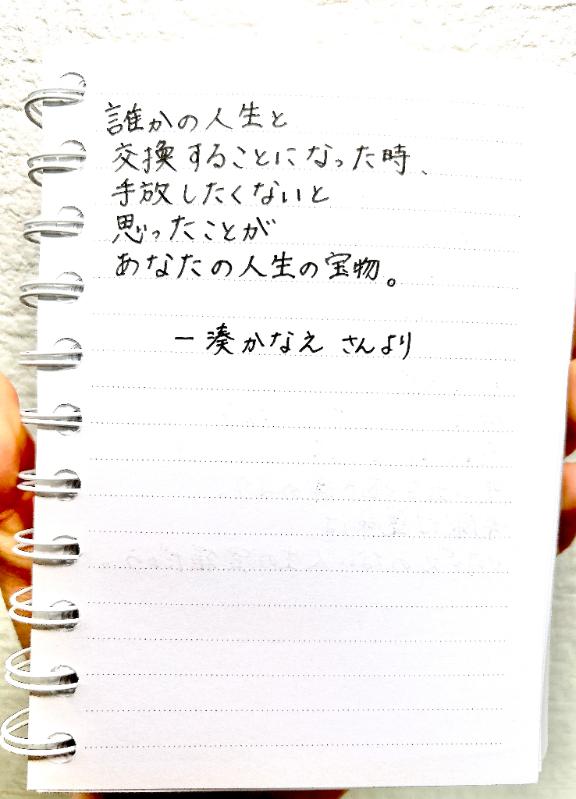 誰かの人生と
交換することになった時、
手放したくないと
思ったことが
あなたの人生の宝物。
ー湊かなえ さんより